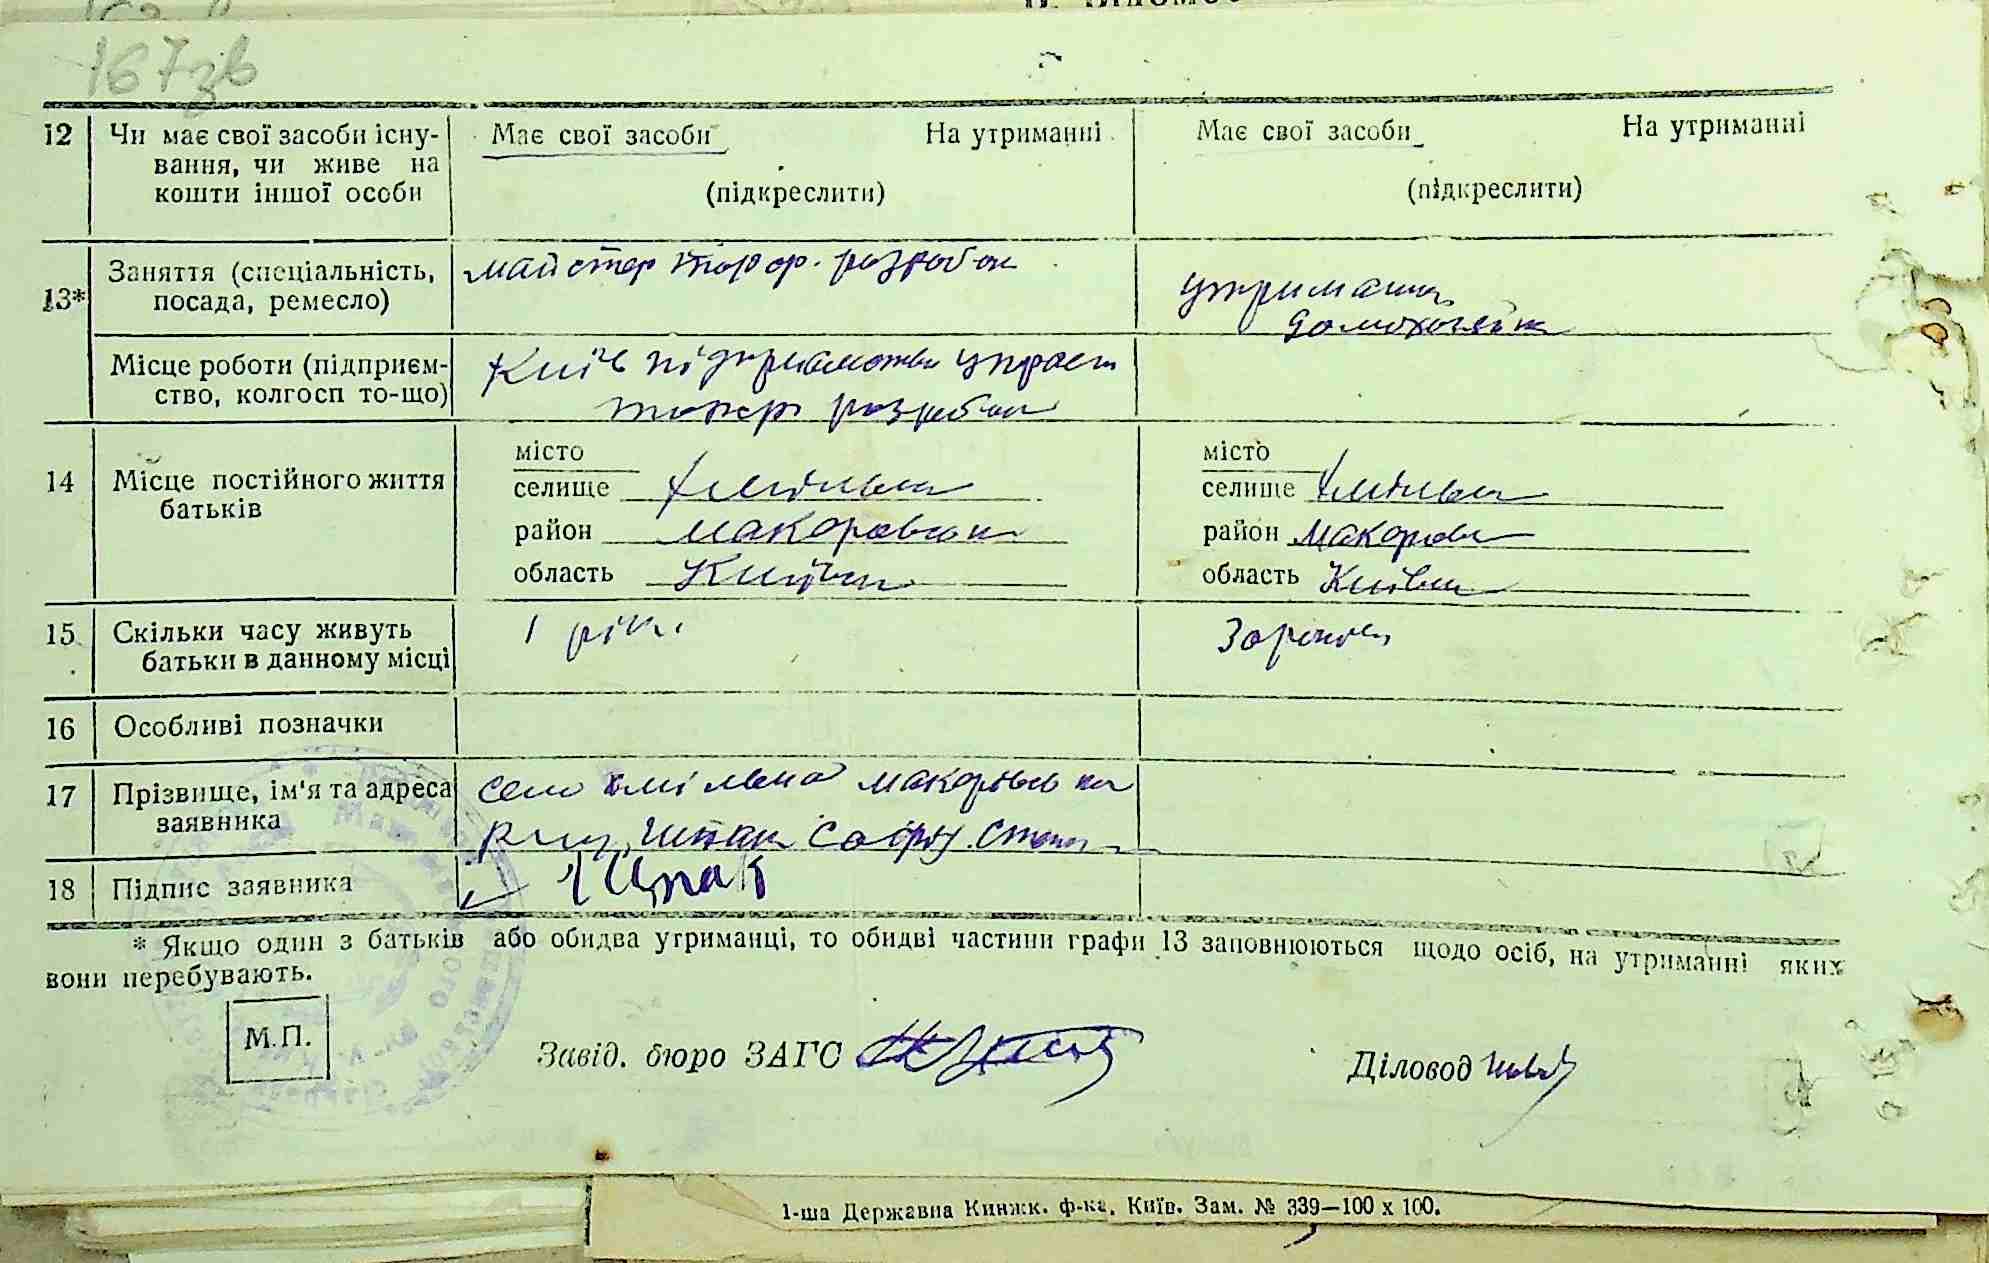 167зв
12 Чи має свої засоби існу- Має свої засоби На утриманні Має свої засоби На утриманні
вання, чи живе на
кошти іншої особи (підкреслити) (підкреслити)
13* Заняття (спеціальність, майстер торф. розробок
посада, ремесло) утриманка
домохозяйка
Місце роботи (підприєм- Київ
ство, колгосп то-що) розробок
14 Місце постійного життя місто місто
батьків селище Хмільна селище Хмільна
район Макоровськ район Макоров
область Київськ область Київськ
15 Скільки часу живуть 1 рік
батьки в данному місці
16 Особливі позначки
17 Прізвище, ім'я та адреса село Хмільна Макорівсько
заявника
18 Підпис заявника
* Якщо один з батьків або обидва утриманці, то обидві частини графи 13 заповнюються щодо осіб, на утриманні яких
вони перебувають.
М.П. Завід. бюро ЗАГС Діловод
1-ша Державна Книжк. ф-ка, Київ. Зам. № 339—100 x 100.